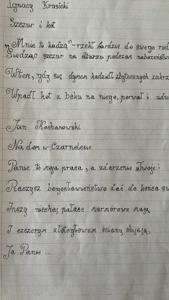 Ignacy Krasicki
Szczur i kot
"Mnie to kadzą" - rzekł hardzie do swego rod
Siedząc szczur na ołtarzu podczas nabożeństwa
Wtem, gdy się dymem kadzideł zbytecznych zakrz
Wpadł kot z boku na niego, porwał i udu
Jan Kochanowski
Na dom w Czarnolesie
Panie to moja praca, a zdarzenie Twoje:
Raczysz błogosławieństwo dać do końca s
Inszy niechaj pałace marmurowe mają
I szczerym złotogłowem ściany obijają,
Ja Panie ...